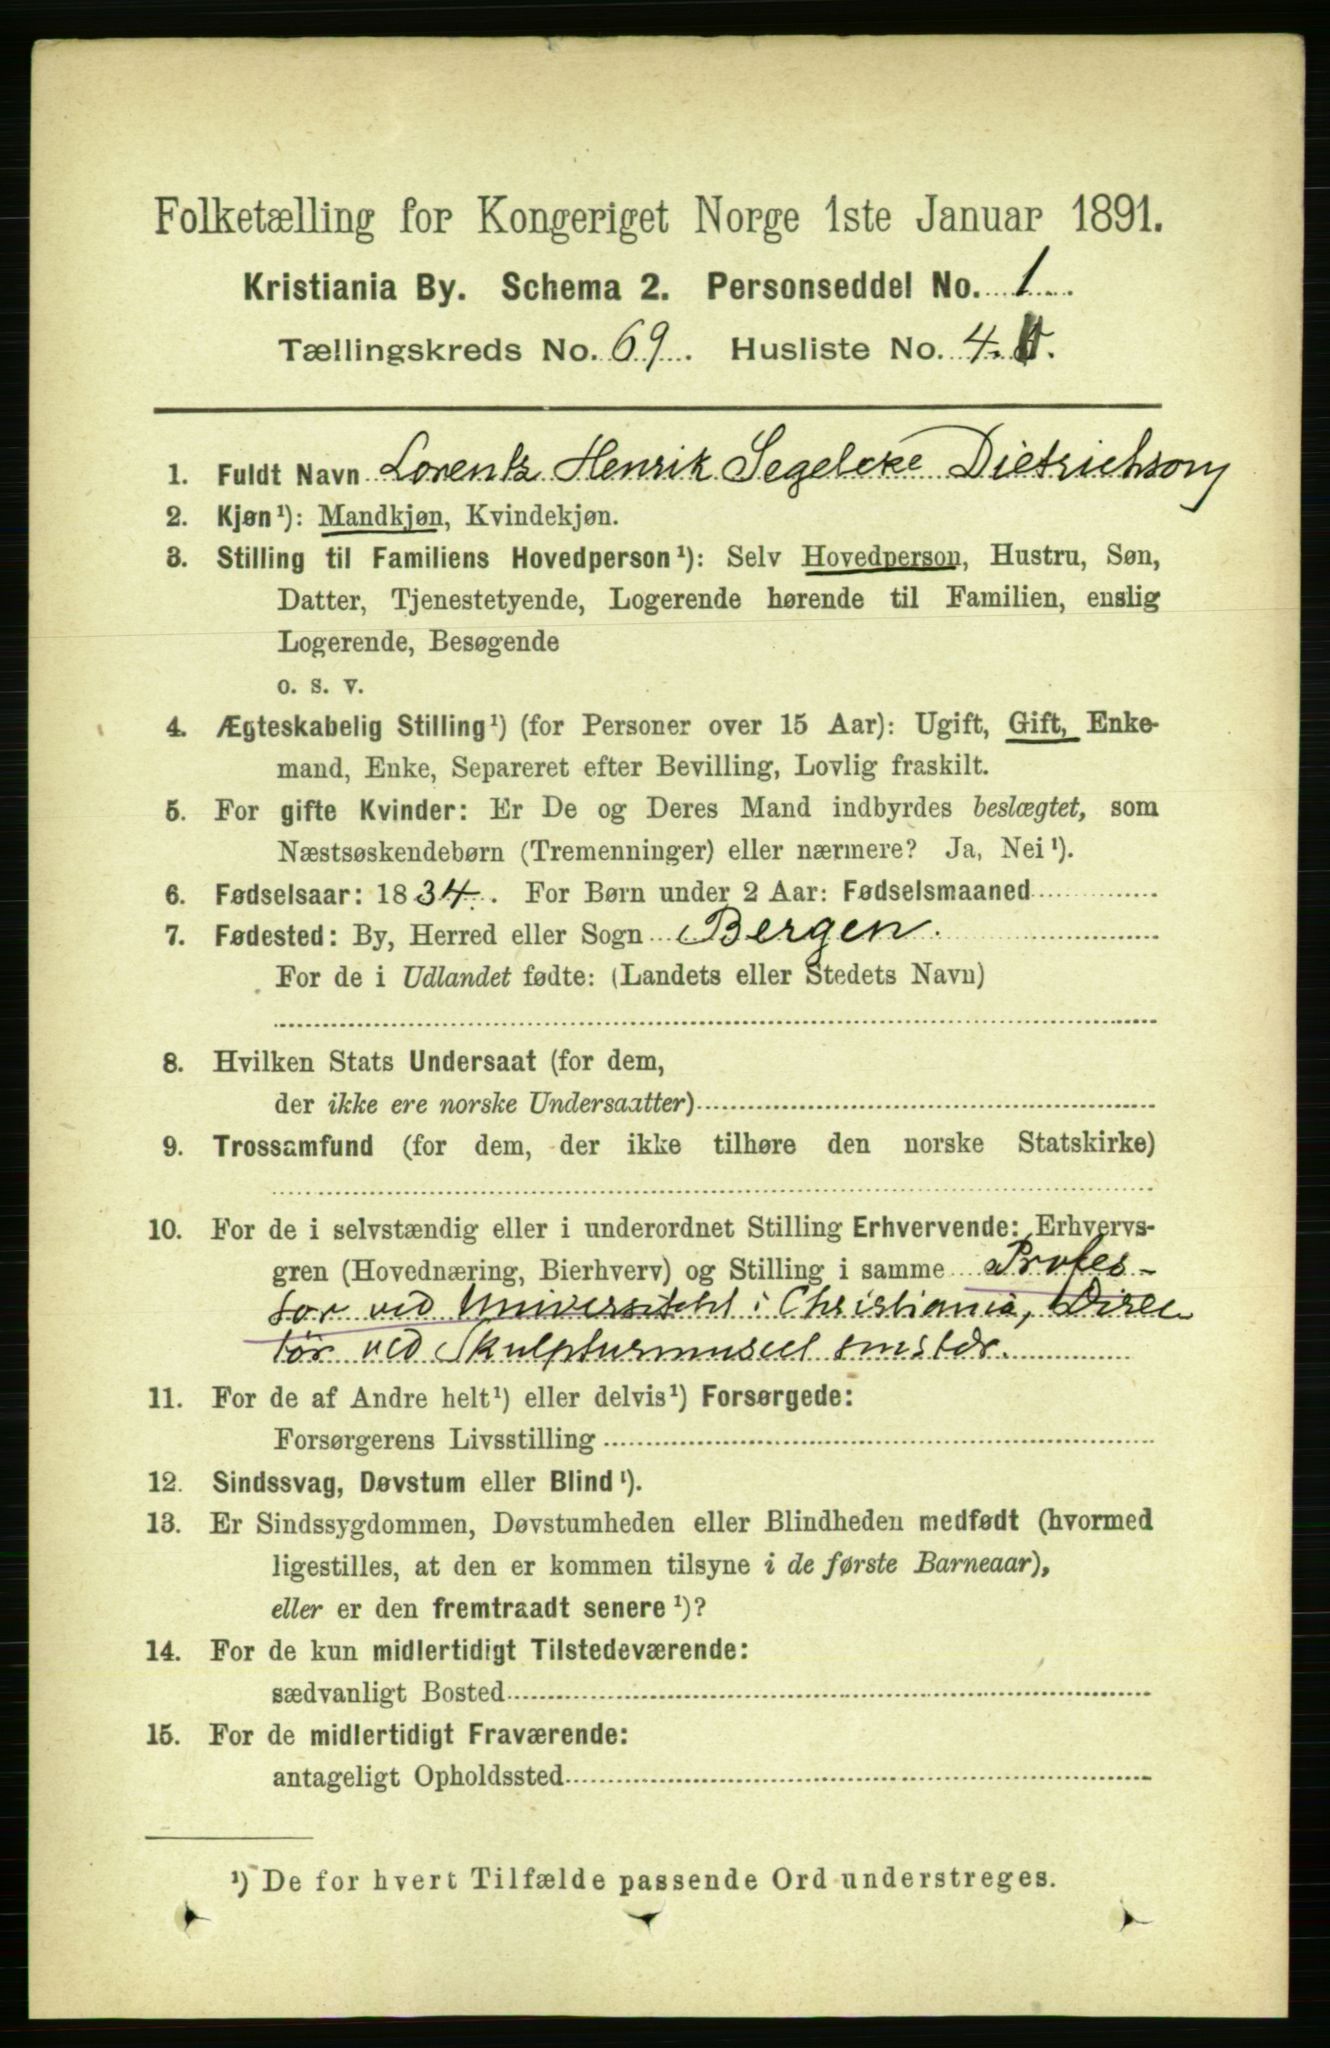 Folketælling for Kongeriget Norge 1ste Januar 1891.
Kristiania By. Schema 2. Personseddel No. 1
Tællingskreds No. 69. Husliste No. 4.
1. Fuldt Navn Lorentz Henrik Segelcke Dietrichson
2. Kjøn¹): Mandkjøn, Kvindekjøn.
3. Stilling til Familiens Hovedperson¹): Selv Hovedperson, Hustru, Søn,
Datter, Tjenestetyende, Logerende hørende til Familien, enslig
Logerende, Besøgende
o. s. v.
4. Ægteskabelig Stilling¹) (for Personer over 15 Aar): Ugift, Gift, Enke-
mand, Enke, Separeret efter Bevilling, Lovlig fraskilt.
5. For gifte Kvinder: Er De og Deres Mand indbyrdes beslægtet, som
Næstsøskendebørn (Tremenninger) eller nærmere? Ja, Nei¹).
6. Fødselsaar: 1834. For Børn under 2 Aar: Fødselsmaaned
7. Fødested: By, Herred eller Sogn Bergen.
For de i Udlandet fødte: (Landets eller Stedets Navn)
8. Hvilken Stats Undersaat (for dem,
der ikke ere norske Undersaatter)
9. Trossamfund (for dem, der ikke tilhøre den norske Statskirke)
10. For de i selvstændig eller i underordnet Stilling Erhvervende: Erhvervs-
gren (Hovednæring, Bierhverv) og Stilling i samme Profes-
sor ved Universitetet i Christiania, Direc
tør ved Skulpturmuseet smstdr.
11. For de af Andre helt¹) eller delvis¹) Forsørgede:
Forsørgerens Livsstilling
12. Sindssvag, Døvstum eller Blind¹).
13. Er Sindssygdommen, Døvstumheden eller Blindheden medfødt (hvormed
ligestilles, at den er kommen tilsyne i de første Barneaar),
eller er den fremtraadt senere¹)?
14. For de kun midlertidigt Tilstedeværende:
sædvanligt Bosted
15. For de midlertidigt Fraværende:
antageligt Opholdssted
¹) De for hvert Tilfælde passende Ord understreges.